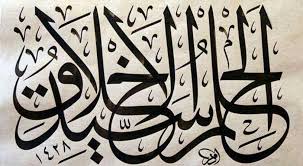 الحلم سيد الأخلاق
١٤٢٨